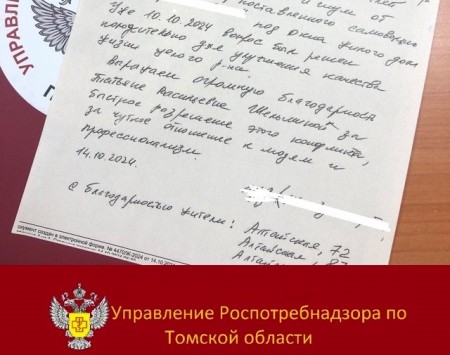 УПРАВЛЕН
и шум от
поставленного самовольно
Уже 10.10.2024 вопрос был решен
под окна жилого дома
положительно для улучшения качества
жизни целого р-на.
Выражаем огромную благодарность
Татьяне Васильевне за
быстрое разрешение этого конфликта,
за чуткое отношение к людям и
профессионализм.
14.10.2024.
С благодарностью жители: Алтайская, 72
Алтайская, 87
Алтай
документ создан в электронной форме. № 4470/Ж-2024 от 14.10
Управление Роспотребнадзора по
Томской области